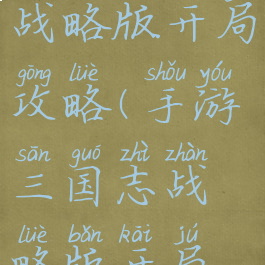 战略版开局
gōng lüè shǒu yóu
攻略(手游
sān guó zhì zhàn
三国志战
lüè bǎn kāi jú
略版开局